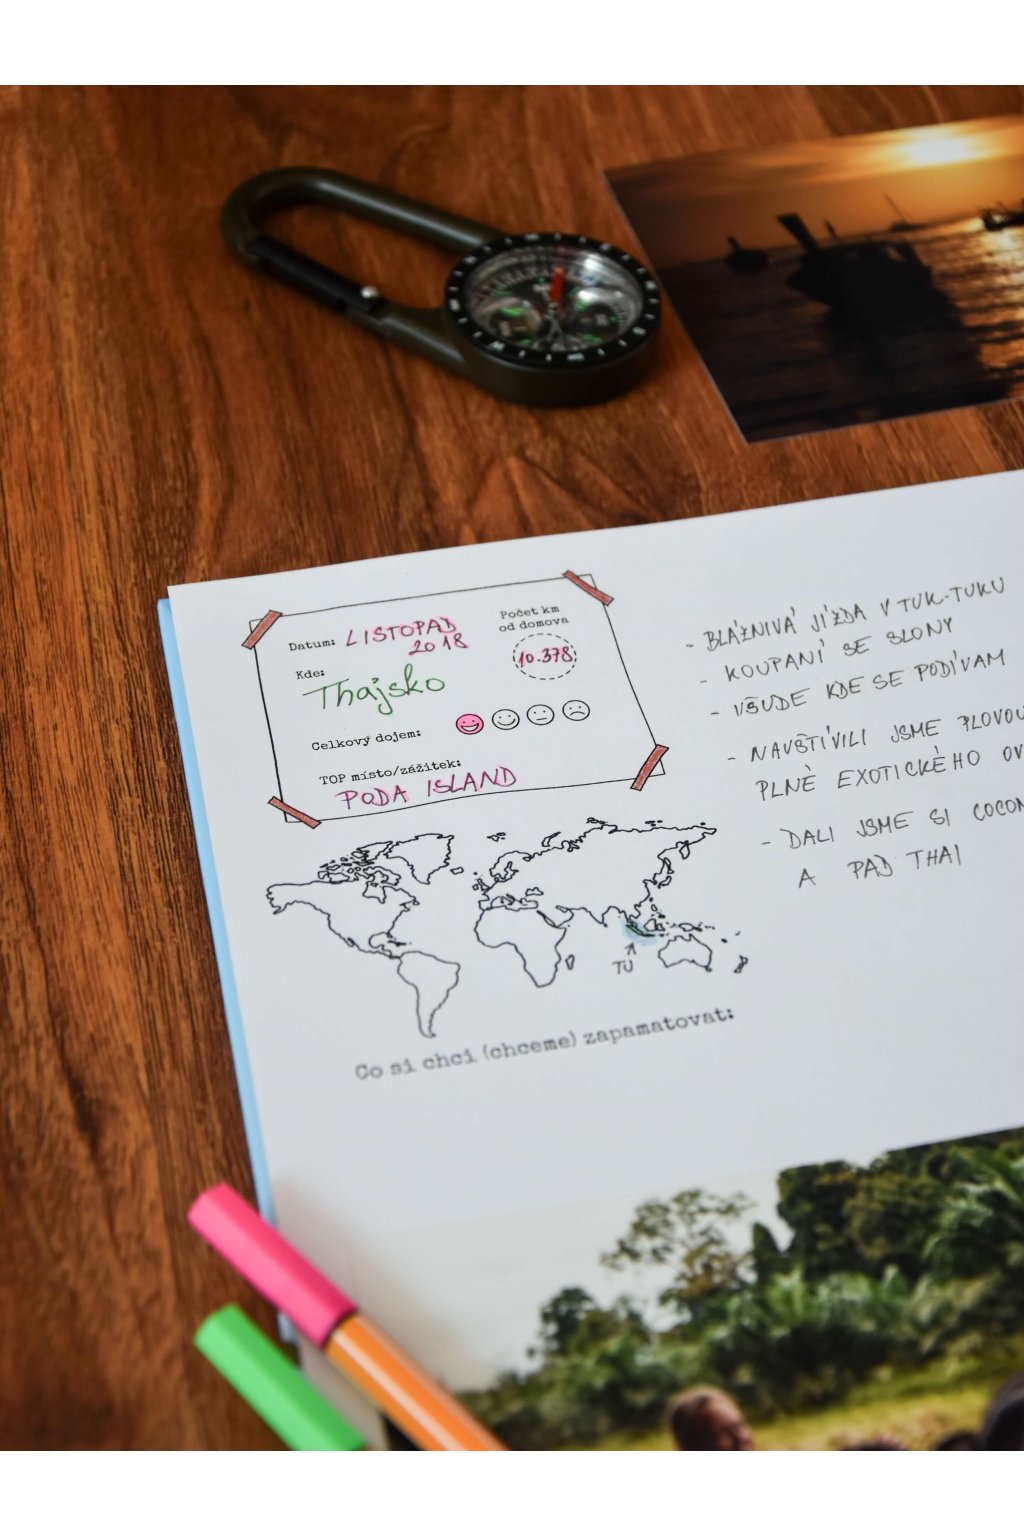 Datum: LISTOPAD
2018
Počet km
od domova
10.378
Kde:
Thajsko
Celkový dojem:
TOP místo/zážitek:
PODA ISLAND
TU
Co si chci (chceme) zapamatovat:
- BLÁZNIVÁ JÍZDA V TUK-TUKU
- KOUPANÍ SE SLONY
- VŠUDE KDE SE PODÍVAM
- NAVŠTÍVILI JSME
PLNÉ EXOTICKÉHO
- DALI JSME SI
A PAD THAI